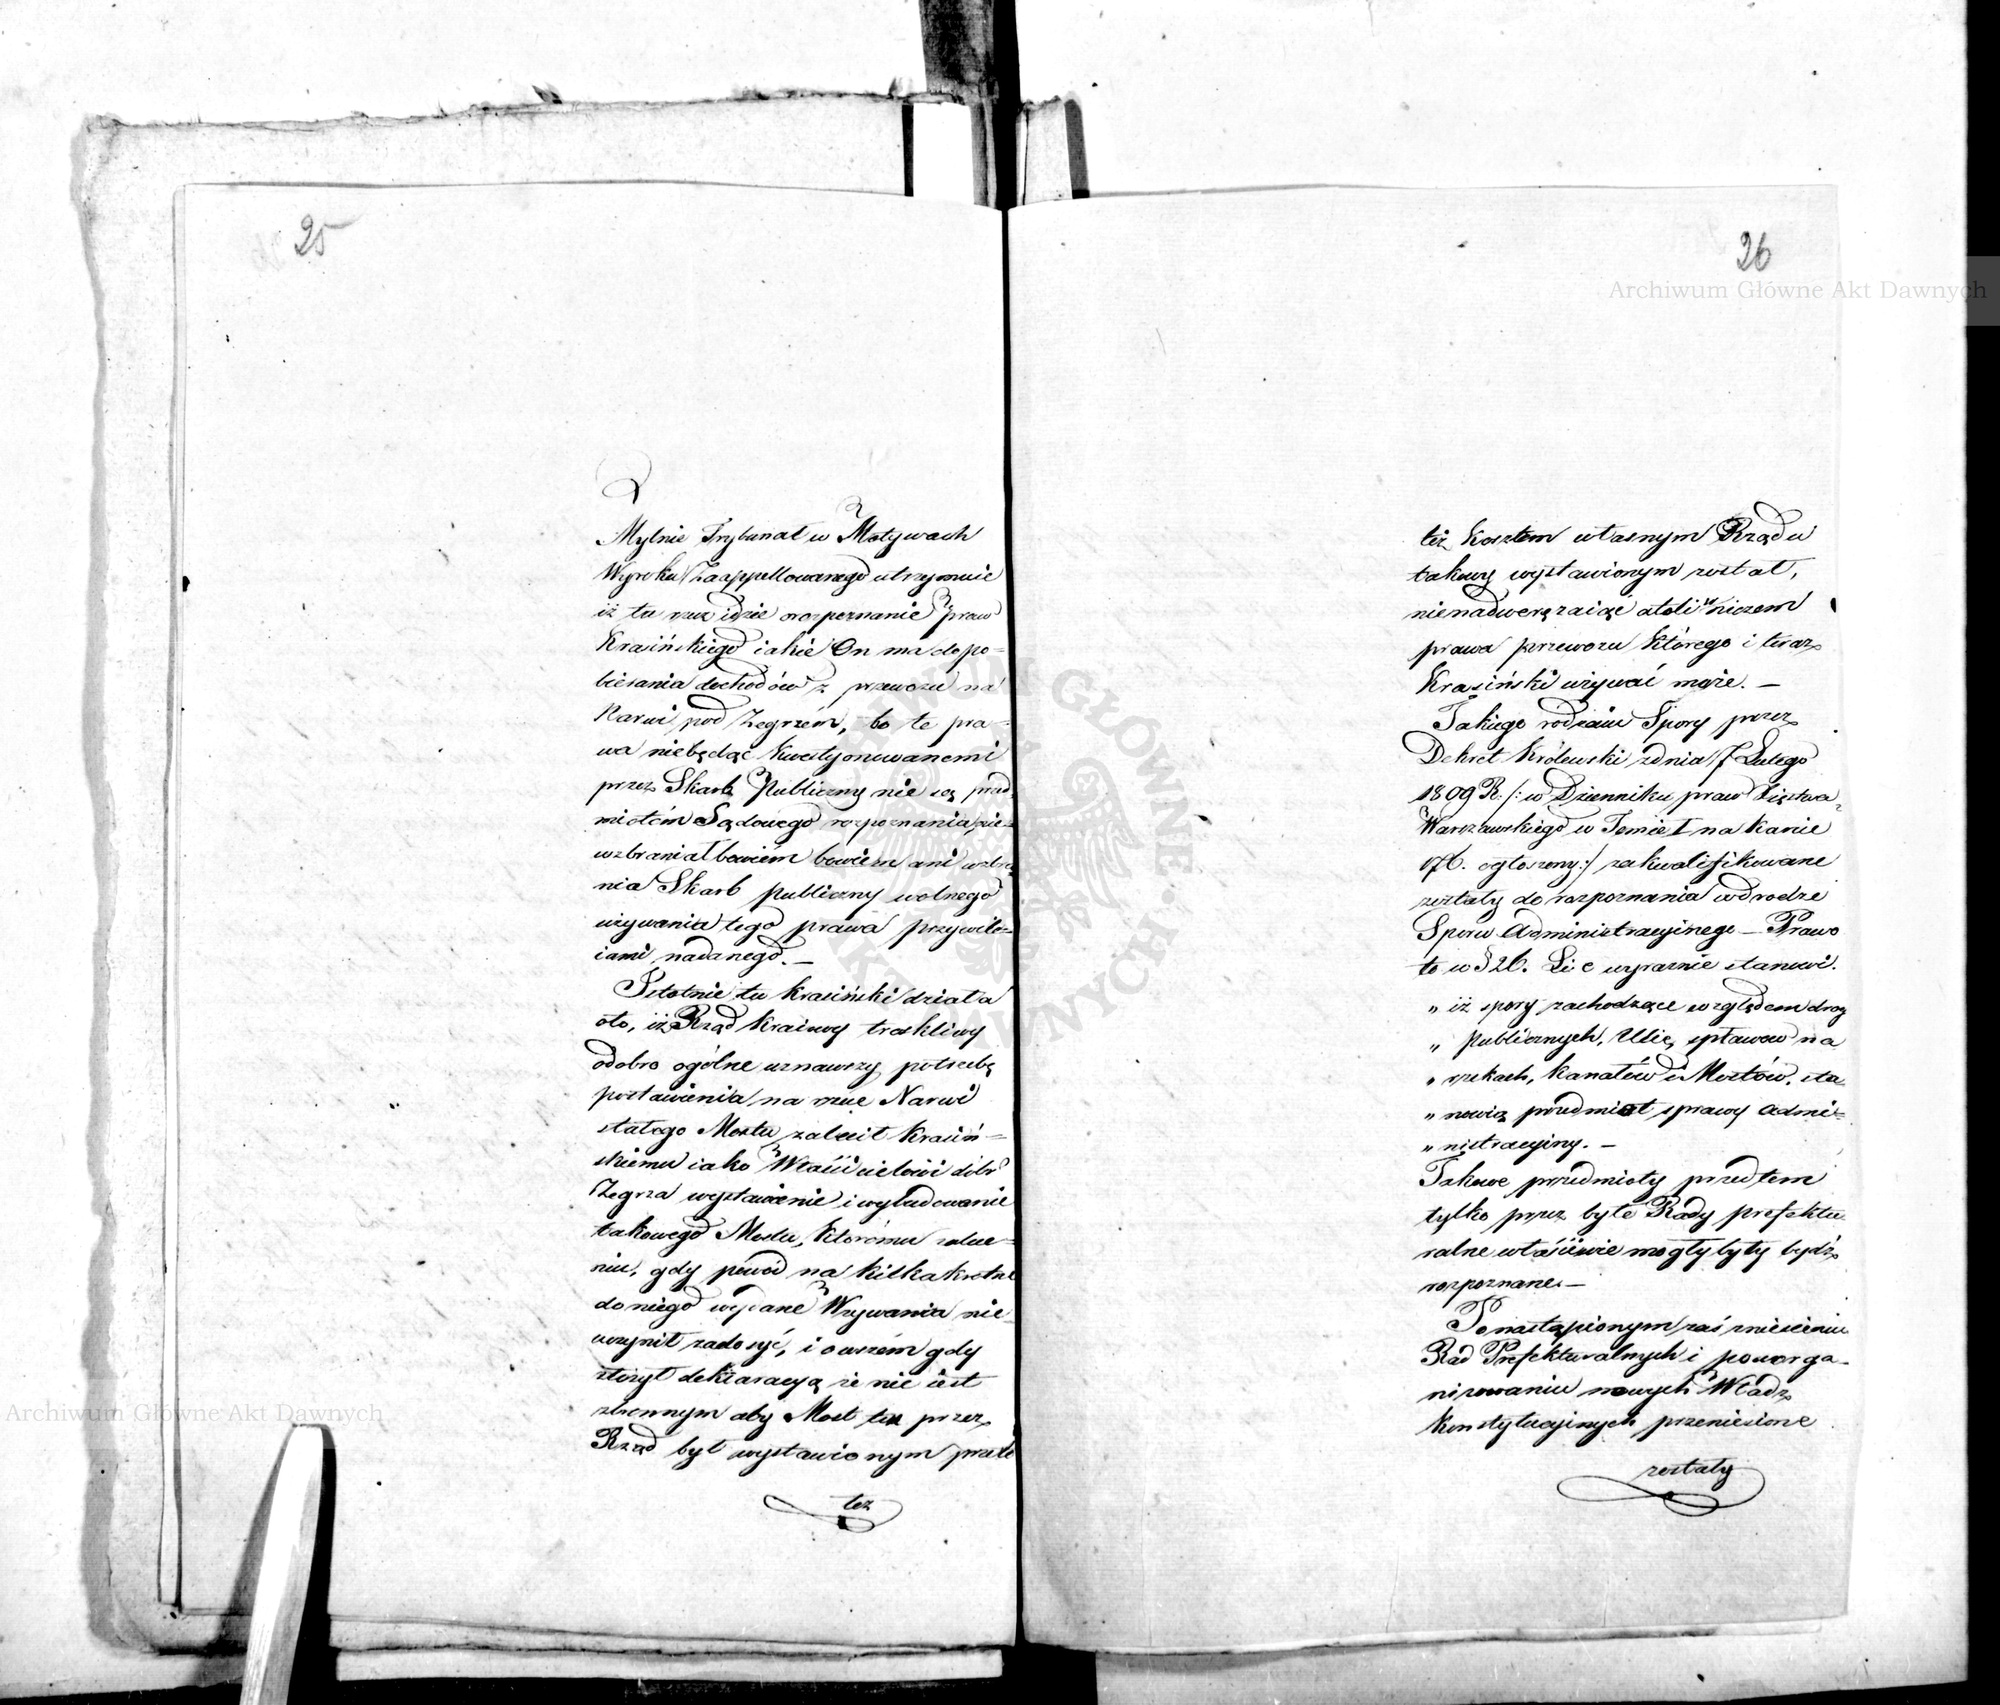 25
Mylnie Trybunał w Motywach
Wyroku Zaappellowanego utrzymuie
iż tu idzie orozpoznanie praw
Krasińskiego iakie On ma dopo=
bierania dochodów z przewozu na
Narwi pod Zegrzem, bo te pra=
wa niebędąc kwestyonowanemi
przez Skarb Publiczny nie są przed
miotem Sądowego rozpoznania, nie=
wzbraniał bowiem bowiem ani wzbra
nia Skarb publiczny wolnego
używania tego prawa przywile=
iami nadanego. —
Istotnie tu Krasiński działa
oto, iż Rząd Kraiowy troskliwy
odobro ogólne uznawszy potrzebę
postawienia na rzece Narwi
stałego Mostu zalecił Krasiń=
skiemu iako Właścicielowi dóbr
Zegrza wystawienie i wybudowanie
takowego Mostu, któremu zalece=
niu, gdy powód na kilkakrotne
do niego wydane Wzywania nie
uczynił zadosyć, i owszem gdy
złożył deklaracyą że nie iest
zbronnym aby Most ten przez
Rząd był wystawionym przeto
też
26
Archiwum Główne Akt Dawnych
też kosztem własnym Rządu
takowy wystawionym został,
nienadwerężaiąc atoli wniczem
prawa przewozu którego i teraz
Krasiński używać może. —
Takiego rodzaiu Spory przez
Dekret Królewski zdnia 7 Lutego
1809 R. /: w Dzienniku praw Xięstwa
Warszawskiego w Tomie I na karcie
176. ogłoszony :/ zakwalifikowane
zostały do rozpoznania wdrodze
Sporu Administracyinego — Prawo
to w § 26. Lit c wyraznie stanowi.
„ iż spory zachodzące względem drog
„ publicznych, Ulic, spławow na
„ rzekach, Kanałów i Mostów, sta
„ nowią przedmiot sprawy admi=
„ nistracyiny. —
Takowe przedmioty przedtem
tylko przez byłe Rady prefektu
ralne właściwie mogły były bydź
rozpoznane. —
Ponastąpionym zaś zniesieniu
Rad Prefekturalnych i pouorga=
nizowaniu nowych Władz
Konstytucyinych przeniesione
zostały
Archiwum Główne Akt Dawnych